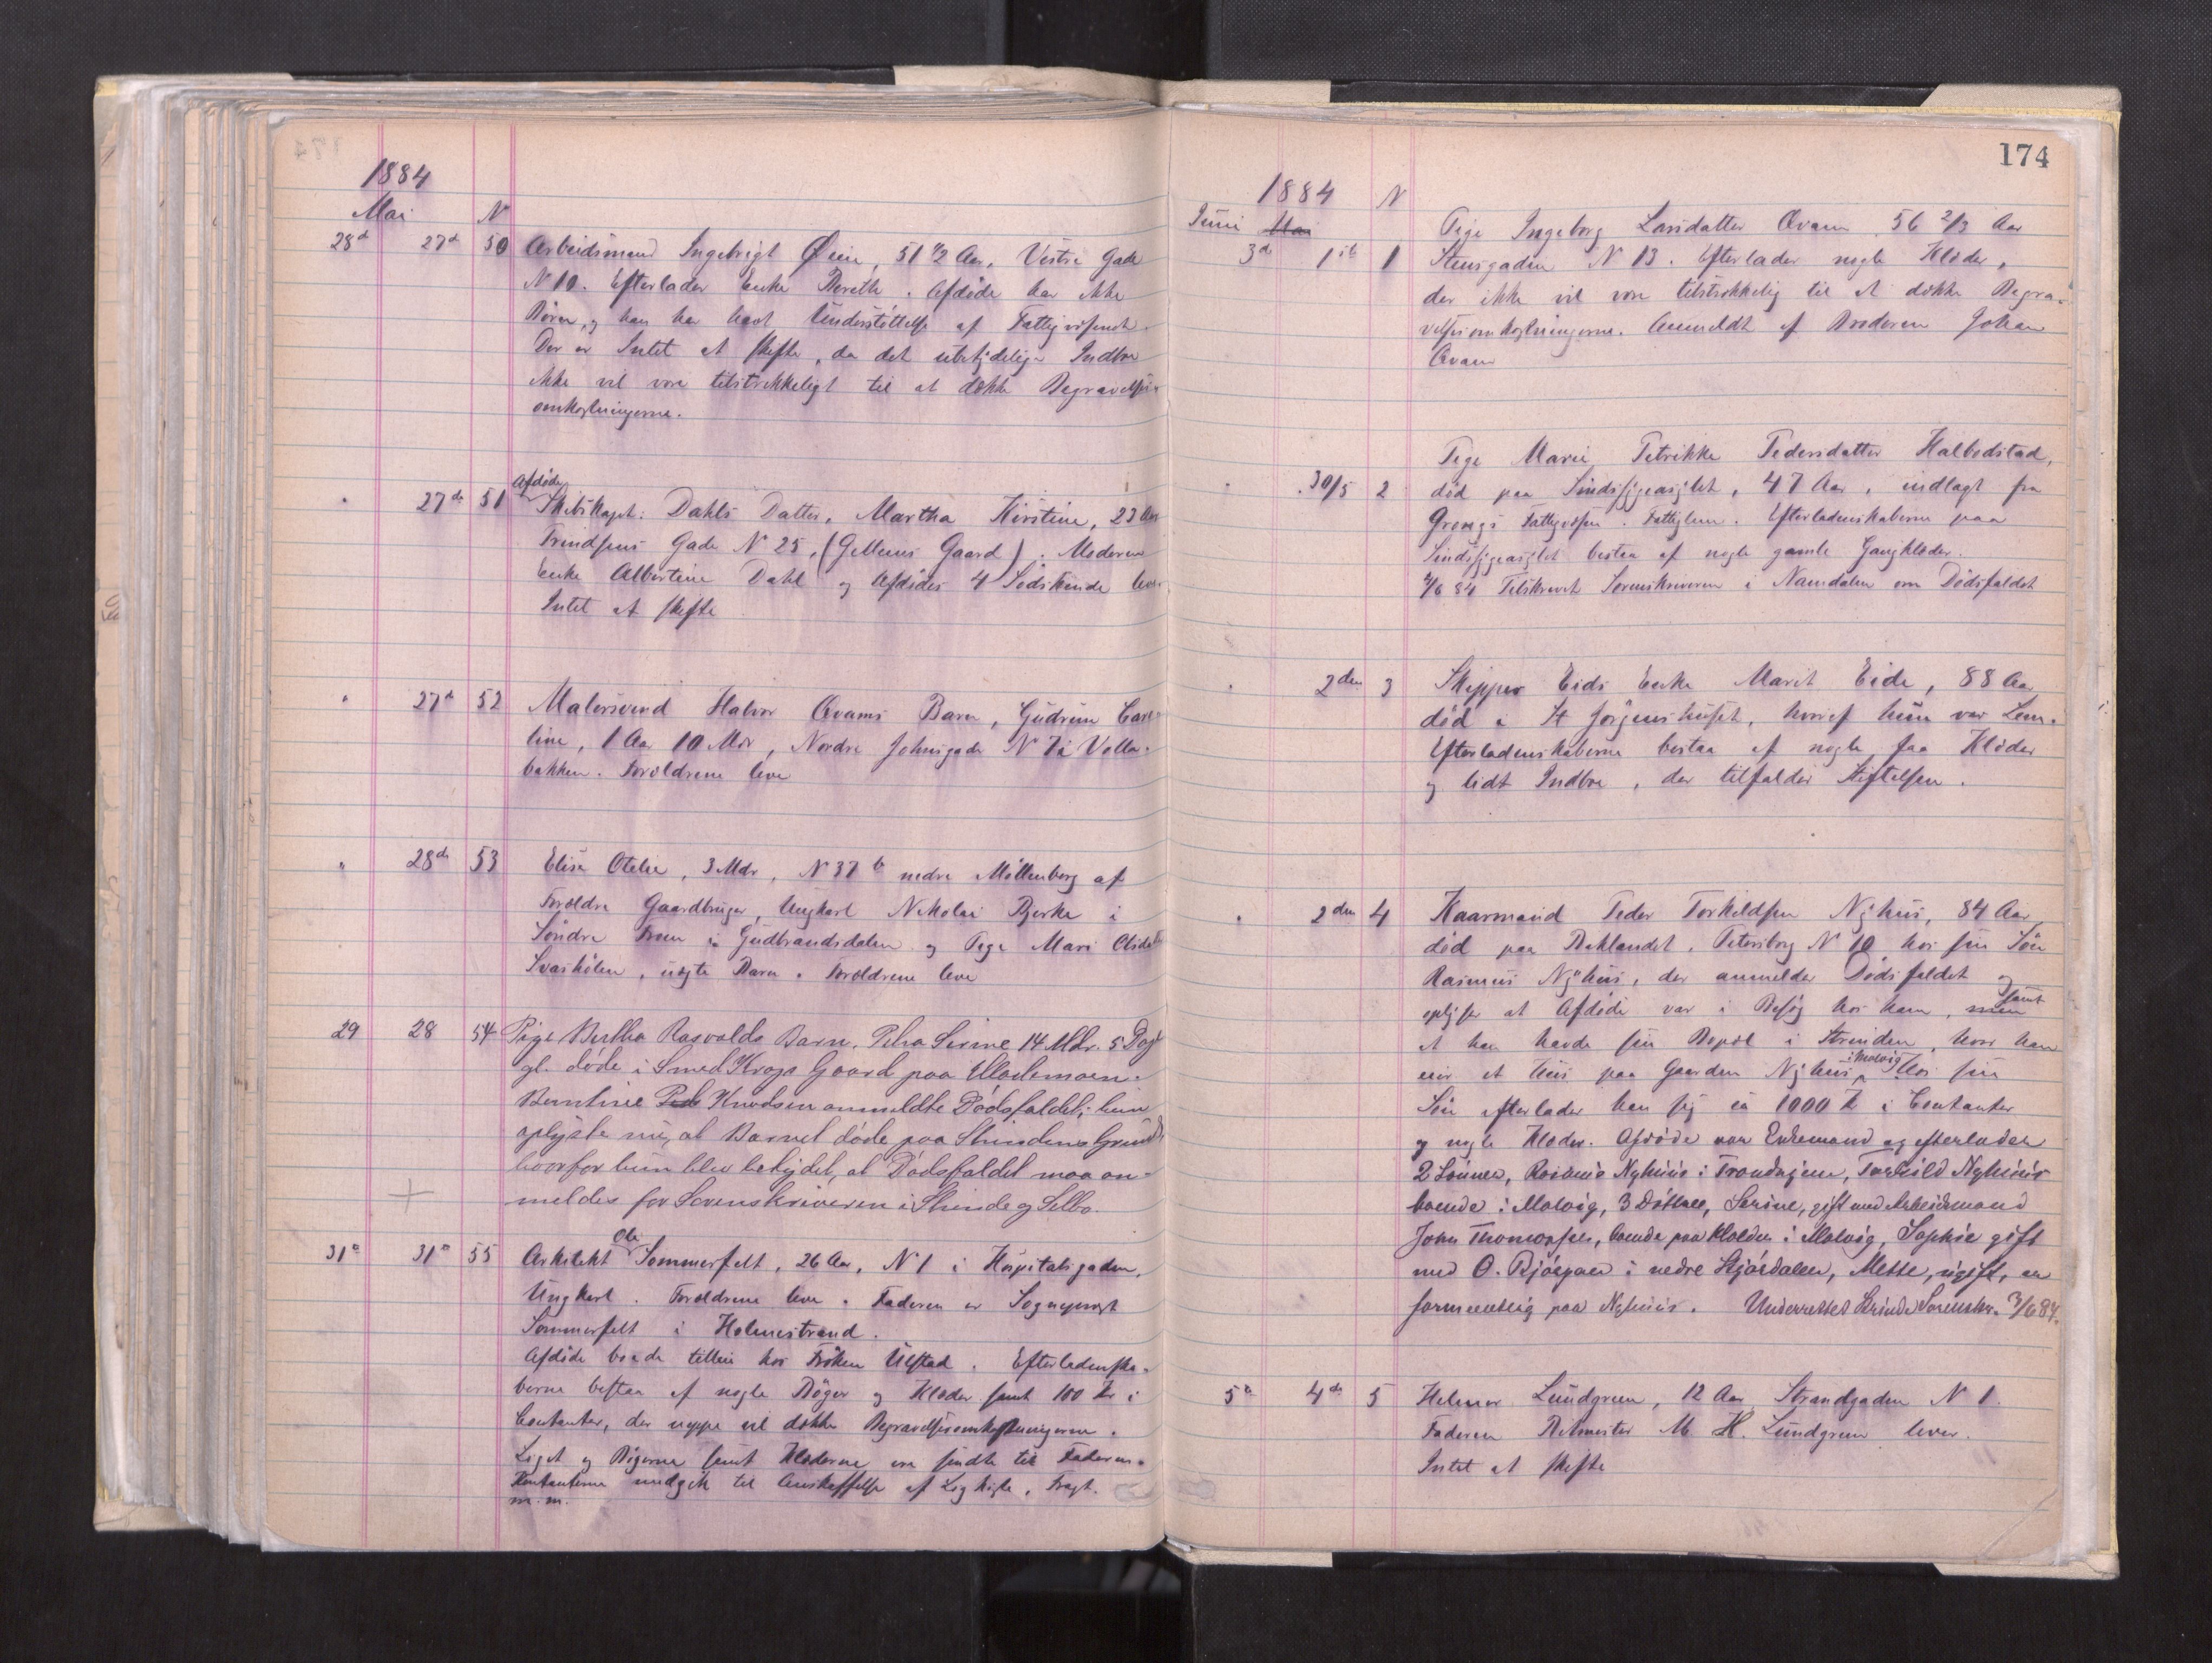 1884
Mai N
28d 27d 50 Arbeidsmand Ingebrigt Øien, 51 1/2 Aar, Vestre Gade
N 10. Efterlader Enke Berethe. Afdøde har ikke
Børn, og han har havt Understøttelse af Fattigvæsenet.
Der er Intet at skifte, da det ubetydelige Indbo
ikke vil være tilstrækkeligt til at dække Begravelses-
omkostningerne.
Afdøde
" 27de 51 Skibskapt. Dahls Datter, Martha Kirstine, 23 Aar
Trindsens Gade N 25, (Gellems Gaard). Moderen
Enke Albertine Dahl og Afdødes 4 Sødskende lever
Intet at skifte.
" 27d 52 Malersvend Halvor Qvams Barn, Gudrun Caro-
line, 1 Aar 10 Mdr, Nordre Johnsgade N 7 i Volla-
bakken. Forældrene lever
" 28de 53 Elise Otelie, 3 Mdr, N 37 b nedre Møllenberg af
Forældre Gaardbruger, Ungkarl Nikolai Bjerke i
Søndre Fron i Gudbrandsdalen og Pige Mari
uægte Barn. Forældrene lever
29 28 54 Pige Bertha Rasvolds Barn, Petra Sirine 14 Mdr. 5 Dage
gl. døde i Smed Krogs Gaard paa Ulademoen.
Berntine Knudsen anmeldte Dødsfaldet; hun
oplyste nu, at Barnet døde paa Strindens Grund,
hvorfor hun blev betydet, at Dødsfaldet maa an-
meldes for Sorenskriveren i Strinde og Selbo.
Ole
31te 31te 55 Arkitekt Sommerfelt, 26 Aar, N 1 i Hospitalsgaden,
Ungkarl. Forældrene lever. Faderen er Sogneprest
Sommerfelt i Holmestrand.
Afdøde boede tilleie hos Frøken Ulstad. Efterladenska-
berne bestaa af nogle Bøger og Klæder samt 100 Kr i
Contanter, der neppe vil dække Begravelsesomkostningerne.
Liget og Bøgerne samt Klæderne ere sendte til Faderen.
Kontanterne medgik til Anskaffelse af Ligkiste, Fragt.
m.m.
174
1884 N
Juni Mai
Pige Ingeborg Larsdatter Qvam 56 2/3 Aar
3die 1ste 1 Steensgaden N 13. Efterlader nogle Klæder,
der ikke vil være tilstrækkelig til at dække Begra-
velsesomkostningerne. Anmeldt af Broderen Johan
Qvam
Pige Marie Petrikke Pedersdatter Halbostad,
" 30/5 2 død paa Sindssygeasylet, 47 Aar, indlagt fra
Grongs Fattigvæsen. Fattiglem. Efterladenskaberne paa
Sindssygeasylet bestaa af nogle gamle Gangklæder.
4/6 84 Tilskrevet Sorenskriveren i Namdalen om Dødsfaldet
" 2den 3 Skipper Eids Enke Marit Eide, 88 Aar
død i St Jørgenshuset, hvoraf hun var Lem.
Efterladenskaberne bestaa af nogle faa Klæder
og lidt Indbo, der tilfalder Stiftelsen.
" 2den 4 Kaarmand Peder Torkildsen Nyhus, 84 Aar
død paa Baklandet, Petersborg N 10 hos sin Søn
Rasmus Nyhus, der anmelder Dødsfaldet og
oplyser at Afdøde var i Besøg hos ham, men samt
at han havde sin Bopæl i Strinden, hvor han
eier et Hus paa Gaarden Nyhus i Malvig. Hos sin
Søn efterlader han sig ca 1000 Kr i Contanter
og nogle Klæder. Afdøde var Enkemand og efterlader
2 Sønner, Rasmus Nyhuus i Trondhjem, Torkild Nyhuus
boende i Malvig, 3 Døttre, Serine, gift med Arbeidsmand
John Thomassen, boende paa Halden i Malvig, Sophie gift
med O. Bjørgaen i nedre Stjørdalen, Mette, ugift, er
formentlig paa Nyhuus. Underrettet Strinde Sorenskr. 3/6 84.
5te 4de 5 Helmer Lundgreen, 12 Aar, Strandgaden N 1.
Faderen M. H. Lundgreen lever.
Intet at skifte